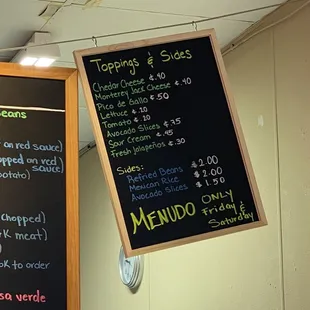 eans
an on red sauce)
opped on red sauce)
potato)
chopped)
K meat)
oK to order
sa verde
Toppings & Sides
Chedar Cheese ¢.40
Monterey Jack Cheese ¢.40
Pico de Gallo ¢.50
Lettuce ¢.10
Tomato ¢.10
Avocado Slices ¢.75
Sour Cream ¢.45
Fresh Jalapeños ¢.30
Sides:
Refried Beans $2.00
Mexican Rice $2.00
Avocado Slices $1.50
MENUDO ONLY
Friday &
Saturday